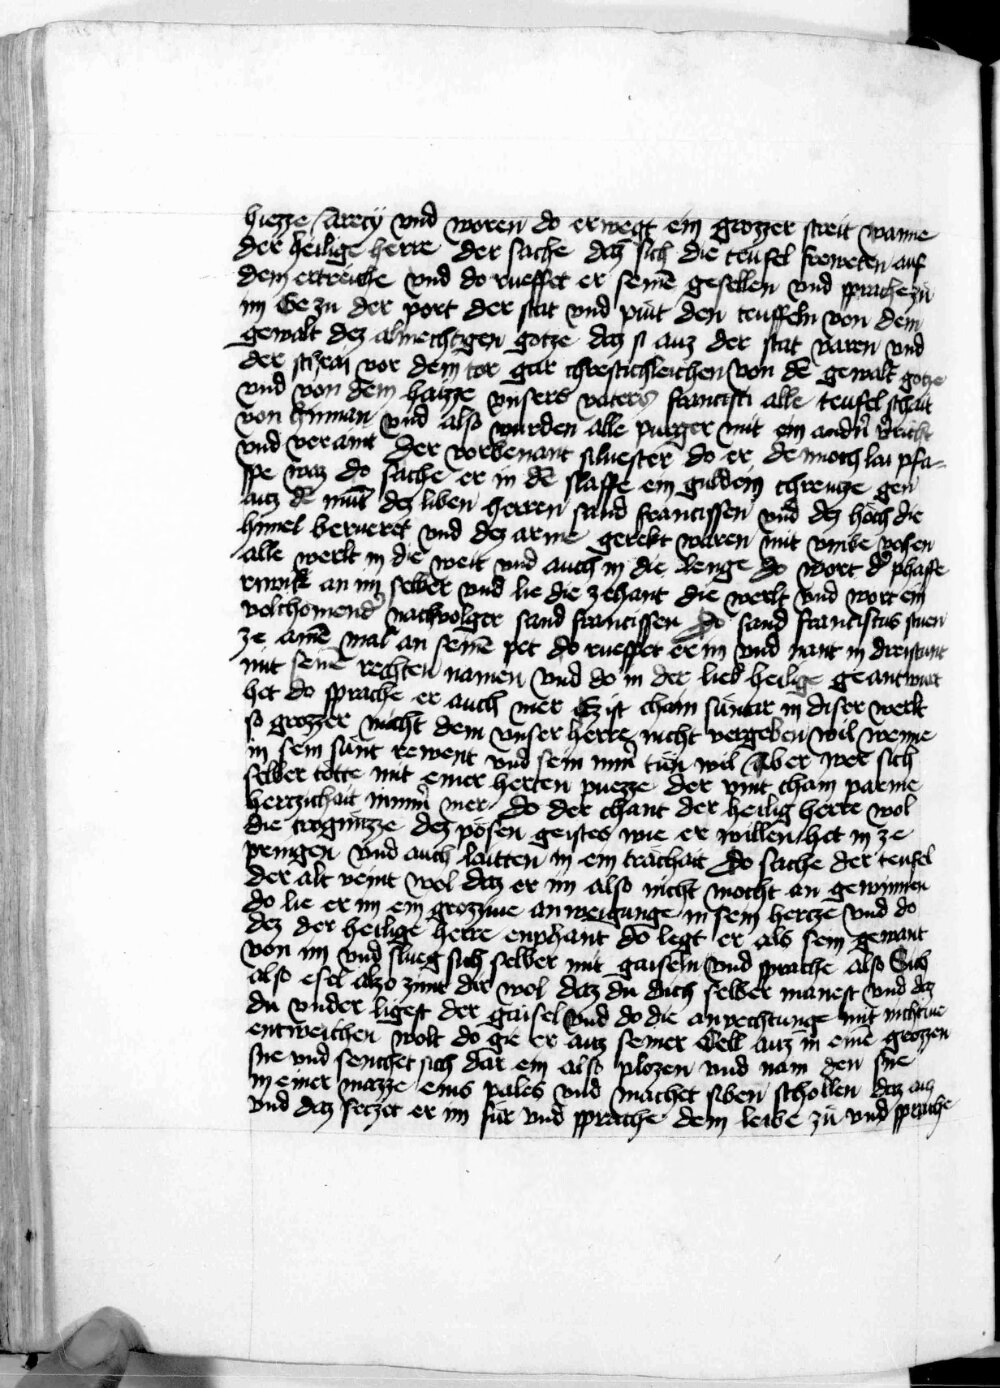 hiezze Arecy vnd woren do erwegt ein grozzer streit wanne
der heilige herre der sache daz sich die teufel freweten auf
dem ertreiche vnd do rueffet er seinē gesellen vnd sprache zu
im Ge zu der port der stat vnd piut den teuffeln von dem
gewalt dez almechtigen gotze daz si auz der stat varen vnd
der schrai vor dem tor gar chrestichleichen von dē gewalt gotze
vnd von dem haizze vnsers vaters francisci alle teufel schait
von hinnan vnd also wurden alle purger mit ein andn̄ bericht
vnd veraint der vorbenant siluester do er dennoch lai pfa-
ffe waz do sache er in dē slaffe ein guldein chreutze gen
auz dē mūt dez liben herren sand francissen vnd dez höch die
himel berueret vnd dez arme gerekt waren mit vmbe vahen
alle werlt in die weit vnd auch in die lenge do wort d' phaffe
an im selber vnd lie die zehant die werlt vnd wort ein
volchomend' nachvolger sand francissen Do sand franciscus
ze ainē mal an seinē pet do rueffet er im vnd nant in dreistunt
mit seinē rechten namen vnd do in der lieb heilige geantwurt
het do sprache er auch mer Ez ist chain sundar in diser werlt
so grozzer nicht dem vnser herre nicht vergeben wil wenne
in sein sunt rewent vnd sein nim' tuen wil Aber wer sich
selber totte mit einer herten puezze der vint chain parme
hertzichait nimm' mer do der chant der heilig herre wol
die trognuzze dez pösen geistes wie er willen het in ze
pringen vnd auch laitten in ein trachait Do sache der teufel
der alt veint wol daz er im also nicht mocht an gewinnen
do lie er im ein grozzive anweigunge in sein hertze vnd do
dez der heilige herre enphant do legt er als sein gewant
von im vnd slueg sich selber mit gaiseln vnd sprache also Sich
also esel also zimt dir wol daz du dich selber manest vnd daz
du vnder ligest der gaisel vnd do die anvechtunge mit nichtive
entweichen wolt do gie er auz seiner Cell auz in einē grozzen
sne vnd senchet sich dar ein also plozen vnd nam den sne
in einer mazze eins pales vnd machet siben schollen dar auz
vnd daz setzet er im für vnd sprache dem leibe zu vnd sprache